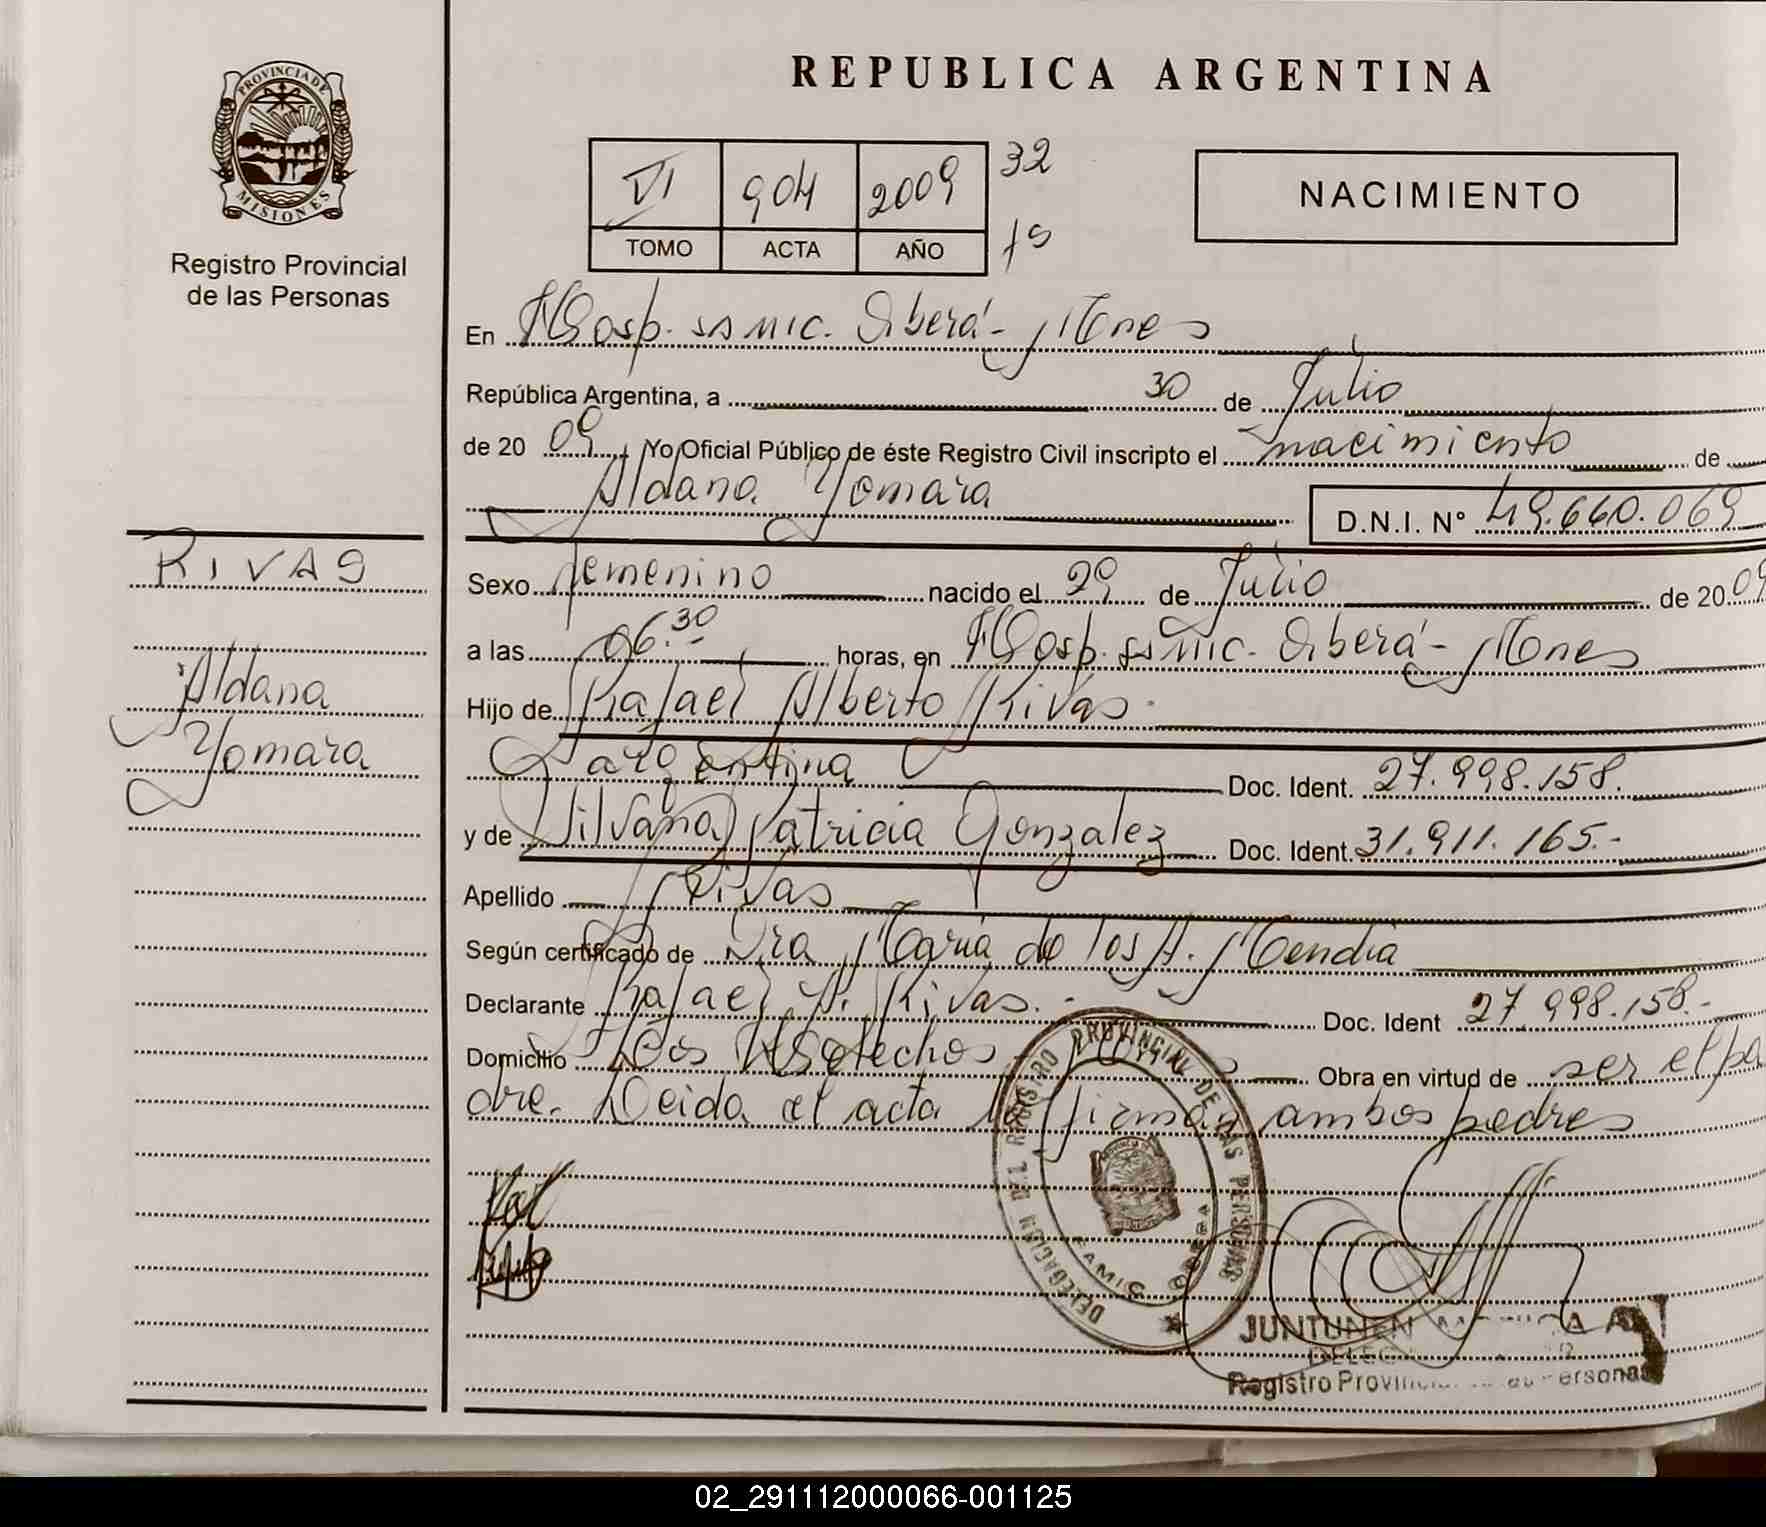 PROVINCIA DE
MISIONES
Registro Provincial
de las Personas
RIVAS
Aldana
Yomara
REPUBLICA ARGENTINA
VI 904 2009 32
TOMO ACTA AÑO 15
NACIMIENTO
En Hosp. SAMIC. Oberá - Mnes
República Argentina, a 30 de Julio
de 20 09, Yo Oficial Público de éste Registro Civil inscripto el nacimiento de
Aldana Yomara D.N.I. Nº 49.660.069
Sexo femenino nacido el 29 de Julio de 20 09
a las 06.30 horas, en Hosp. SAMIC. Oberá - Mnes
Hijo de Rafael Alberto Rivas.
argentina Doc. Ident. 27.998.158.
y de Silvana Patricia Gonzalez Doc. Ident. 31.911.165.-
Apellido Rivas
Según certificado de Dra María de los A. Mendia
Declarante Rafael A. Rivas.- Doc. Ident 27.998.158.-
Domicilio Los Helechos - Mnes Obra en virtud de ser el pa
dre. Leida el acta la firman ambos padres
DELEGACION DEL REGISTRO PROVINCIAL DE LAS PERSONAS
SAMIC OBERA
JUNTUNEN
Registro Provincial de las Personas
02_291112000066-001125